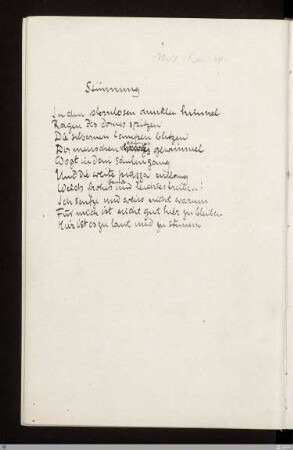 Stimmung
In den sternlosen dunklen himmel
Ragen des domes spitzen
Die silbernen lampen blitzen
Der menschen gewimmel
Wogt in dem säulengang
Und die weite piazza entlang
Welch frohes und leichtes treiben!
Ich seufze und weiss nicht warum
Für mich ist nicht gut hier zu bleiben
Hier ist es zu laut und zu stumm